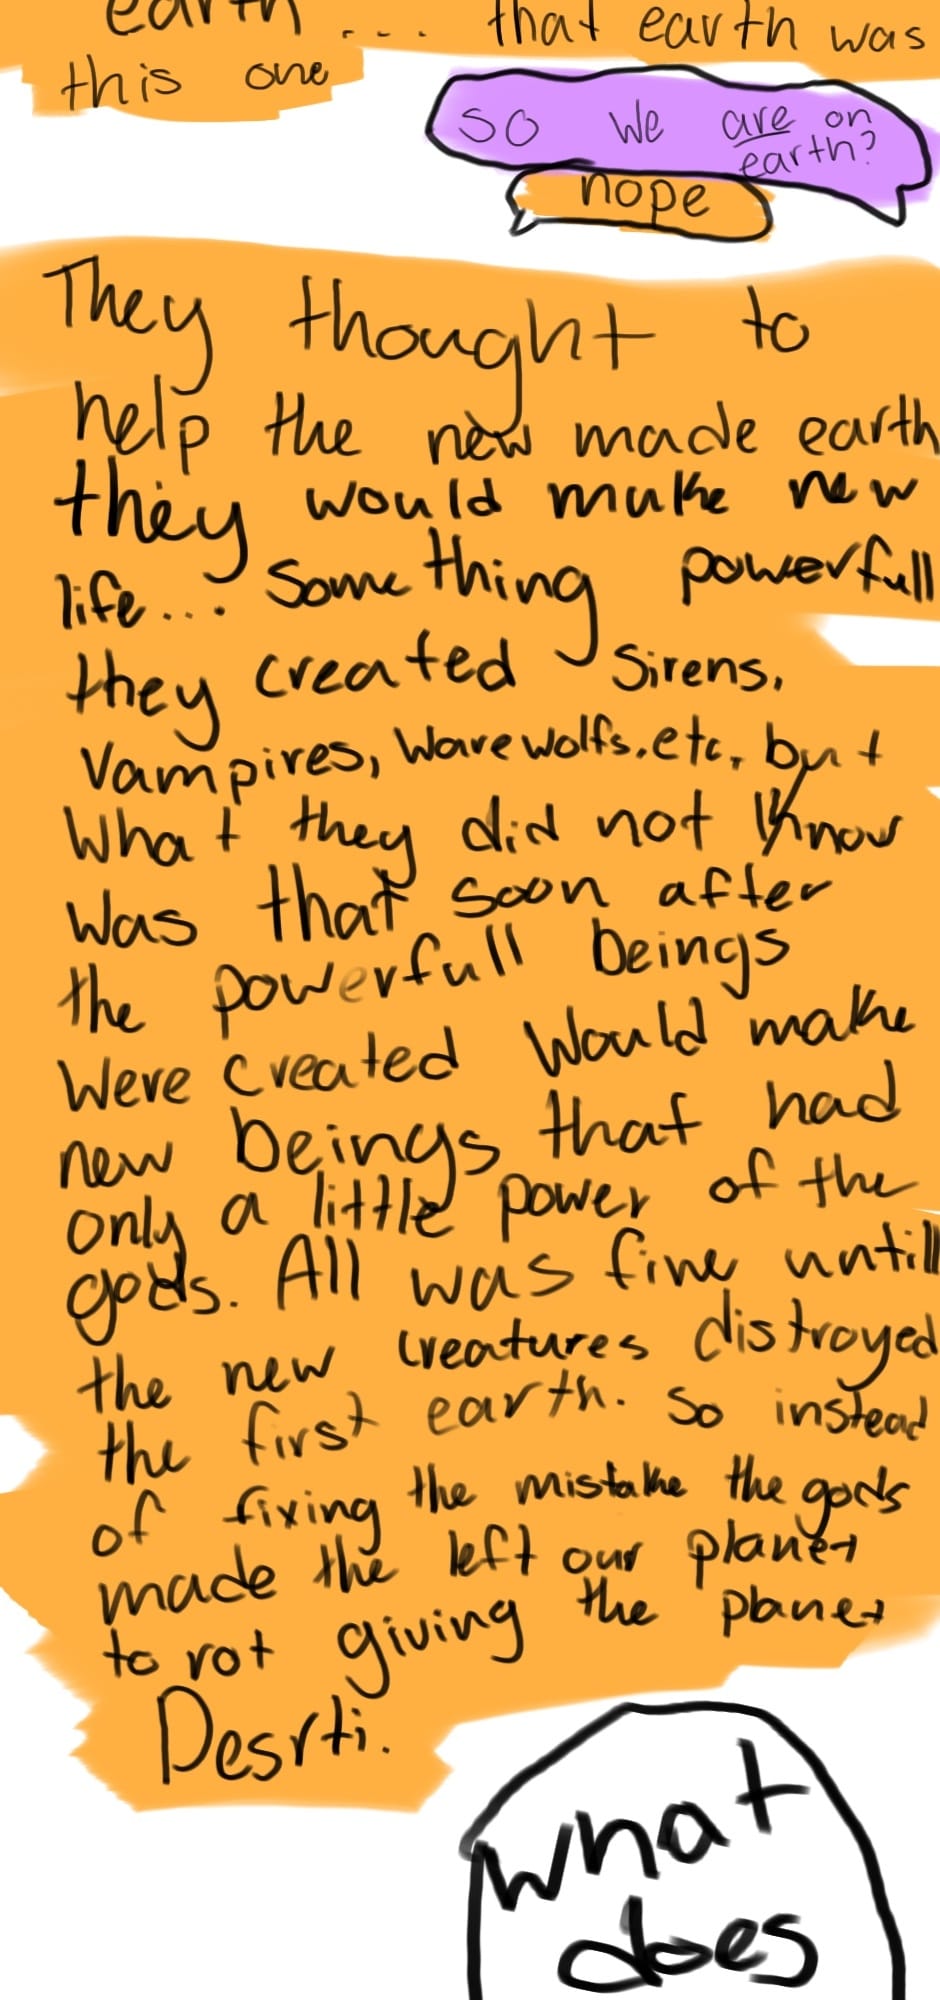 earth.... that earth was
this one
so we are on
earth?
nope
They thought to
help the new made earth
they would make new
life... Something powerfull
they created Sirens,
Vampires, Warewolfs, etc, but
What they did not know
was that soon after
the powerfull beings
Were created Would make
new beings that had
only a little power of the
gods. All was fine untill
the new creatures distroyed
the first earth. So instead
of fixing the mistake the gods
made the left our planet
to rot giving the planet
Desrti.
what
does